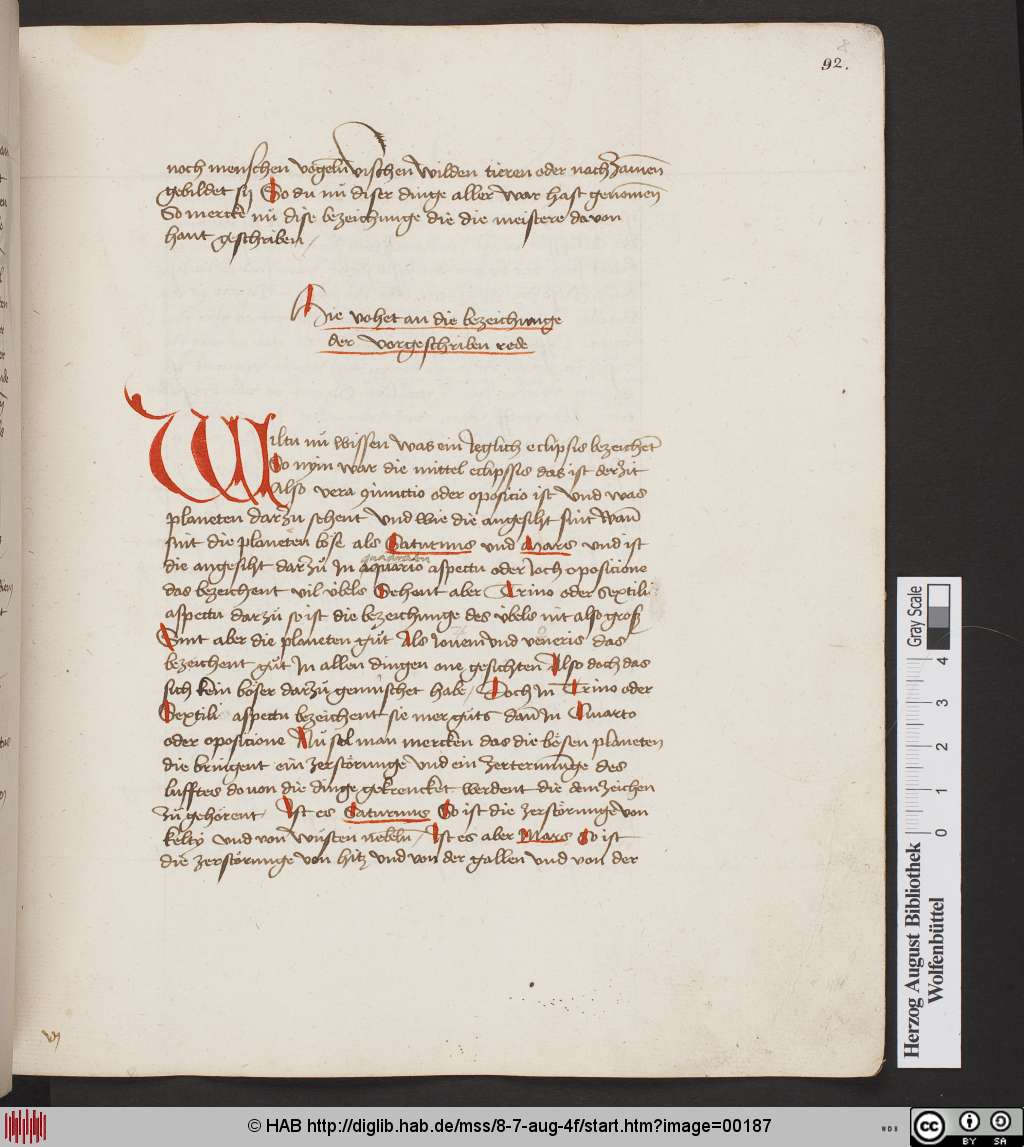 92.
noch menschen vogeln vischen wilden tieren oder nach zamen
gebildet sy So du nu diser dinge aller war hast genomen
So mercke nu dise bezeichunge die die meistere da von
hant geschriben
Hie vohet an die bezeichunge
der vorgeschriben rede
Wiltu nu wissen was ein Jeglich eclipsis bezeichet
So nym war die mittel eclipssis das ist der zit
Also vera 9iunctio oder oposicio ist Vnd was
planeten dar zu sehent vnd wie die angesiht sint wan
sint die planeten böse als Saturnus vnd Mars vnd ist
quadratu
die angesiht dar zu In aquario aspectu oder Joch oposicione
das bezeichent vil vbels Sehent aber Trino oder Sextili
aspectu dar zu so ist die bezeichunge des vbels nit also groß
Sint aber die planeten gut Als iouem vnd veneris das
bezeichent gut In allen dingen one gesichten Also doch das
sich kein böser dar zu gemischet habe Doch In Trino oder
Sextili aspectu bezeichent sie mer guts dan In Quarto
oder oposicione Nu sol man mercken das die bösen planeten
die bringent ein zerstörunge vnd ein zerterminge des
lufftes do von die dinge gekrencket werdent die dem zeichen
zu gehörent Ist es Saturnus So ist die zerstörunge von
kelty vnd von wüsten nebeln Ist es aber Mars So ist
die zerstörunge von hitz vnd von der gallen vnd von der
Herzog August Bibliothek
Wolfenbüttel
Gray Scale
0 1 2 3 4
© HAB http://diglib.hab.de/mss/8-7-aug-4f/start.htm?image=00187
WDB
cc BY SA